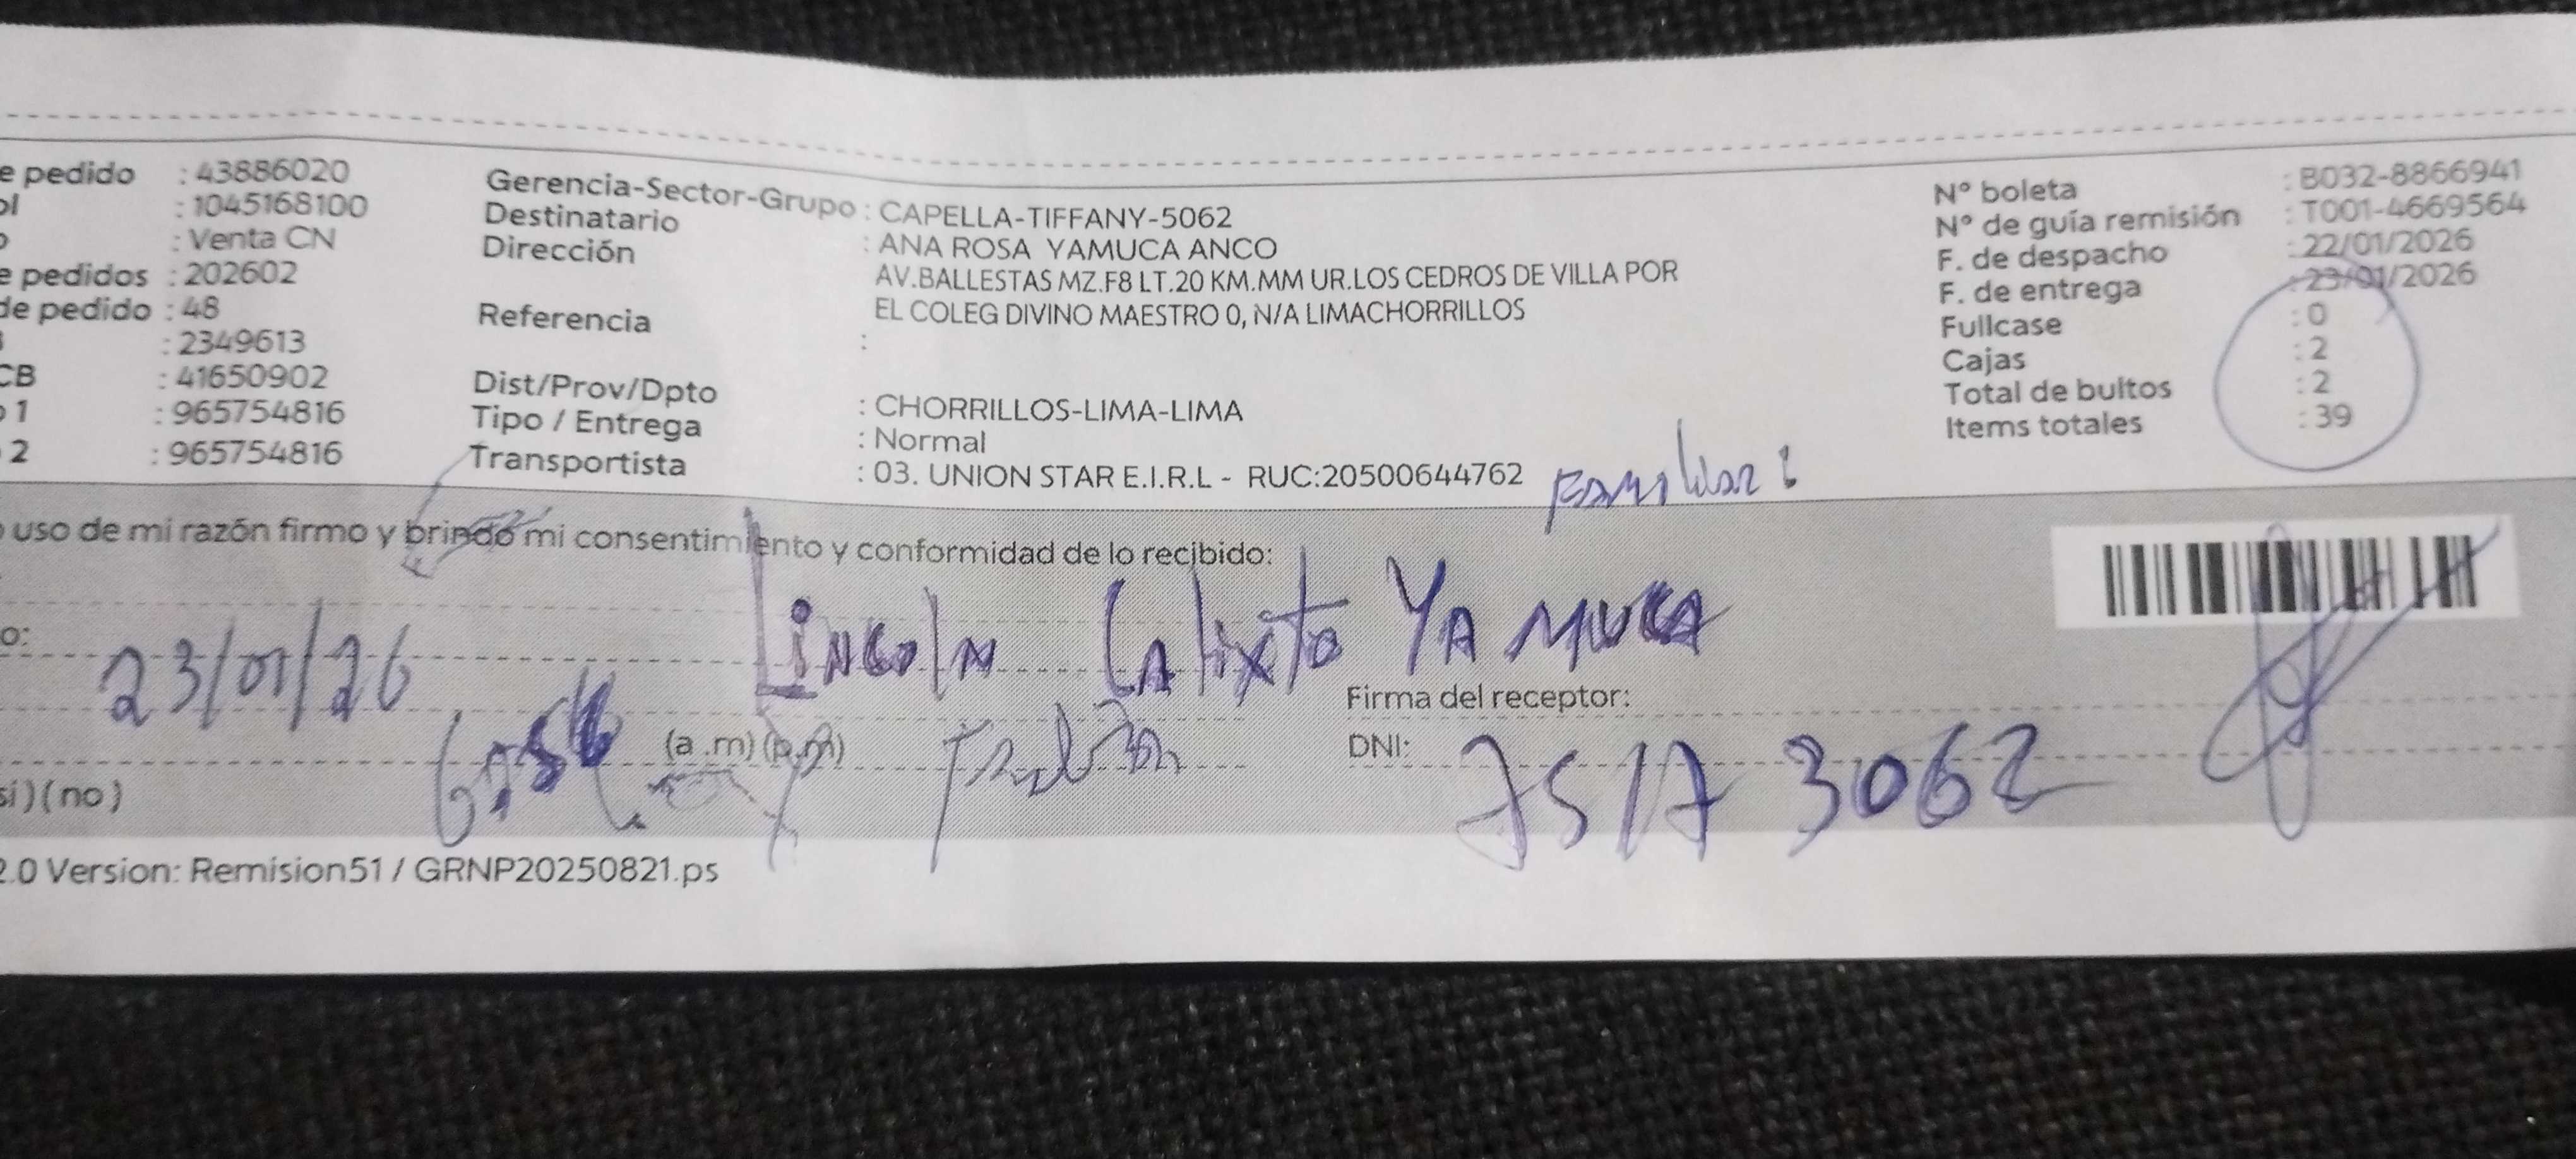 e pedido : 43886020
ol : 1045168100
o : Venta CN
e pedidos : 202602
de pedido : 48
: 2349613
CB : 41650902
o 1 : 965754816
2 : 965754816
Gerencia-Sector-Grupo : CAPELLA-TIFFANY-5062
Destinatario : ANA ROSA YAMUCA ANCO
Dirección AV.BALLESTAS MZ.F8 LT.20 KM.MM UR.LOS CEDROS DE VILLA POR
EL COLEG DIVINO MAESTRO 0, N/A LIMACHORRILLOS
Referencia :
Dist/Prov/Dpto : CHORRILLOS-LIMA-LIMA
Tipo / Entrega : Normal
Transportista : 03. UNION STAR E.I.R.L - RUC:20500644762
Nº boleta : B032-8866941
Nº de guía remisión : T001-4669564
F. de despacho : 22/01/2026
F. de entrega : 23/01/2026
Fullcase : 0
Cajas : 2
Total de bultos : 2
Items totales : 39
Familiar :
o uso de mi razón firmo y brindo mi consentimiento y conformidad de lo recibido:
Lincoln Calixto YAMUCA
o: 23/01/26
Firma del receptor:
(a .m) (p.m)
DNI: 75173062
si ) ( no )
2.0 Version: Remision51 / GRNP20250821.ps